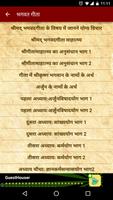 भगवत गीता
श्रीमद् भगवदगीता के विषय में जानने योग्य विचार
श्रीमद् भगवदगीता माहात्म्य
श्रीगीतामाहात्म्य का अनुसंधान भाग 1
श्रीगीतामाहात्म्य का अनुसंधान भाग 2
गीता में श्रीकृष्ण भगवान के नामों के अर्थ
अर्जुन के नामों के अर्थ
पहला अध्यायः अर्जुनविषादयोग भाग 1
पहला अध्यायः अर्जुनविषादयोग भाग 2
दूसरा अध्यायः सांख्ययोग भाग 1
दूसरा अध्यायः सांख्ययोग भाग 2
GuestHouser